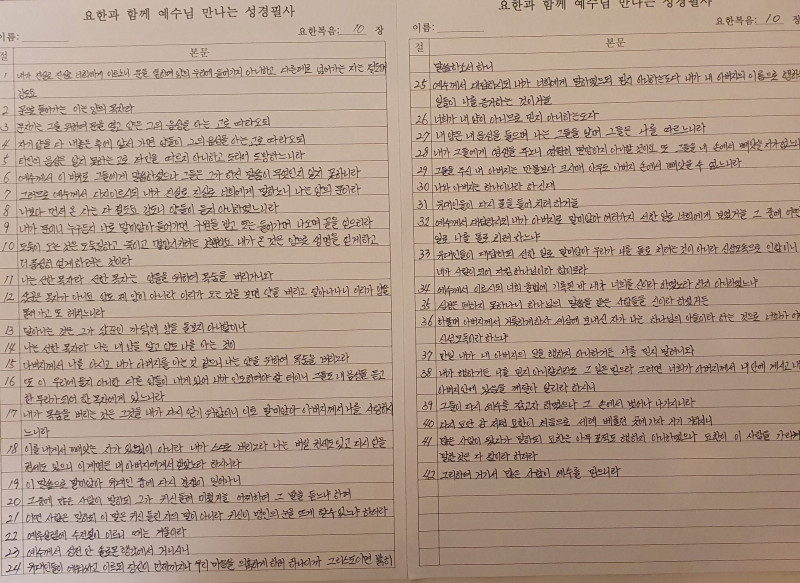 요한과 함께 예수님 만나는 성경필사
이름:
요한복음: 10 장
절 본문
1 내가 진실로 진실로 너희에게 이르노니 문을 통하여 양의 우리에 들어가지 아니하고 다른데로 넘어가는 자는 절도며
강도요
2 문으로 들어가는 이는 양의 목자라
3 문지기는 그를 위하여 문을 열고 양은 그의 음성을 듣나니
4 자기 양을 다 내놓은 후에 앞서 가면 양들이 그의 음성을 아는 고로 따라오되
5 타인의 음성은 알지 못하는 고로 타인을 따르지 아니하고 도리어 도망하느니라
6 예수께서 이 비유로 그들에게 말씀하셨으나 그들은 그가 하신 말씀이 무엇인지 알지 못하니라
7 그러므로 예수께서 다시 이르시되 내가 진실로 진실로 너희에게 말하노니 나는 양의 문이라
8 나보다 먼저 온 자는 다 절도요 강도니 양들이 듣지 아니하였느니라
9 내가 문이니 누구든지 나로 말미암아 들어가면 구원을 받고 또는 들어가며 나오며 꼴을 얻으리라
10 도둑이 오는 것은 도둑질하고 죽이고 멸망시키려는 것뿐이요 내가 온 것은 양으로 생명을 얻게하고
더 풍성히 얻게하려는 것이라
11 나는 선한 목자라 선한 목자는 양들을 위하여 목숨을 버리거니와
12 삯꾼은 목자가 아니요 양도 제 양이 아니라 이리가 오는 것을 보면 양을 버리고 달아나나니 이리가 양을
물어 가고 또 헤치느니라
13 달아나는 것은 그가 삯꾼인 까닭에 양을 돌보지 아니함이나
14 나는 선한 목자라 나는 내 양을 알고 양도 나를 아는 것이
15 아버지께서 나를 아시고 내가 아버지를 아는 것 같으니 나는 양을 위하여 목숨을 버리노라
16 또 이 우리에 들지 아니한 다른 양들이 내게 있어 내가 인도하여야 할 터이니 그들도 내 음성을 듣고
한 무리가 되어 한 목자에게 있으리라
17 내가 목숨을 버리는 것은 그것을 내가 다시 얻기 위함이니 이로 말미암아 아버지께서 나를 사랑하시
느니라
18 이를 내게서 빼앗는 자가 있는 것이 아니라 내가 스스로 버리노라 나는 버릴 권세도 있고 다시 얻을
권세도 있으니 이 계명은 내 아버지에게서 받았노라 하시니라
19 이 말씀으로 말미암아 유대인 중에 다시 분쟁이 일어나니
20 그 중에 많은 사람이 말하되 그가 귀신들려 미쳤거늘 어찌하여 그 말을 듣느냐 하며
21 어떤 사람은 말하되 이 말은 귀신 들린 자의 말이 아니라 귀신이 맹인의 눈을 뜨게 할 수 있느냐 하더라
22 예루살렘에 수전절이 이르니 때는 겨울이라
23 예수께서 성전 안 솔로몬 행각에서 거니시니
24 유대인들이 에워싸고 이르되 당신이 언제까지나 우리 마음을 의혹하게 하려 하나이까 그리스도이면 밝히
요한과 함께 예수님 만나는 성경필사
이름:
요한복음: 10 장
절 본문
말씀하소서 하니
25 예수께서 대답하시되 내가 너희에게 말하였으되 믿지 아니하는도다 내가 내 아버지의 이름으로 행하는
일들이 나를 증거하는 것이거늘
26 너희가 내 양이 아니므로 믿지 아니하는도다
27 내 양은 내 음성을 들으며 나는 그들을 알며 그들은 나를 따르느니라
28 내가 그들에게 영생을 주노니 영원히 멸망하지 아니할 것이요 또 그들을 내 손에서 빼앗을 자가 없느니라
29 그들을 주신 내 아버지는 만물보다 크시매 아무도 아버지 손에서 빼앗을 수 없느니라
30 나와 아버지는 하나이니라 하신대
31 유대인들이 다시 돌을 들어 치려 하거늘
32 예수께서 대답하시되 내가 아버지로 말미암아 여러가지 선한 일로 너희에게 보였거늘 그 중에 어떤
일로 나를 돌로 치려 하느냐
33 유대인들이 대답하되 선한 일로 말미암아 우리가 너를 돌로 치려는 것이 아니라 신성모독으로 인함이니
네가 사람이 되어 자칭 하나님이라 함이로라
34 예수께서 이르시되 너희 율법에 기록된 바 내가 너희를 신이라 하였노라 하지 아니하였느냐
35 성경은 폐하지 못하나니 하나님의 말씀을 받은 사람들을 신이라 하셨거든
36 하물며 아버지께서 거룩하게하사 세상에 보내신 자가 나는 하나님의 아들이라 하는 것으로 너희가 어찌
신성모독이라 하느냐
37 만일 내가 내 아버지의 일을 행하지 아니하거든 나를 믿지 말려니와
38 내가 행하거든 나를 믿지 아니할지라도 그 일은 믿으라 그러면 너희가 아버지께서 내 안에 계시고 내가
아버지안에 있음을 깨달아 알리라 하시니
39 그들이 다시 예수를 잡고자 하였으나 그 손에서 벗어나 나가시니라
40 다시 요단 강 저편 요한이 처음으로 세례 베풀던 곳에 가사 거기 거하시니
41 많은 사람이 왔다가 말하되 요한은 아무 표적도 행하지 아니하였으나 요한이 이 사람을 가리켜
말한 것은 다 참이라 하더라
42 그리하여 거기서 많은 사람이 예수를 믿으니라